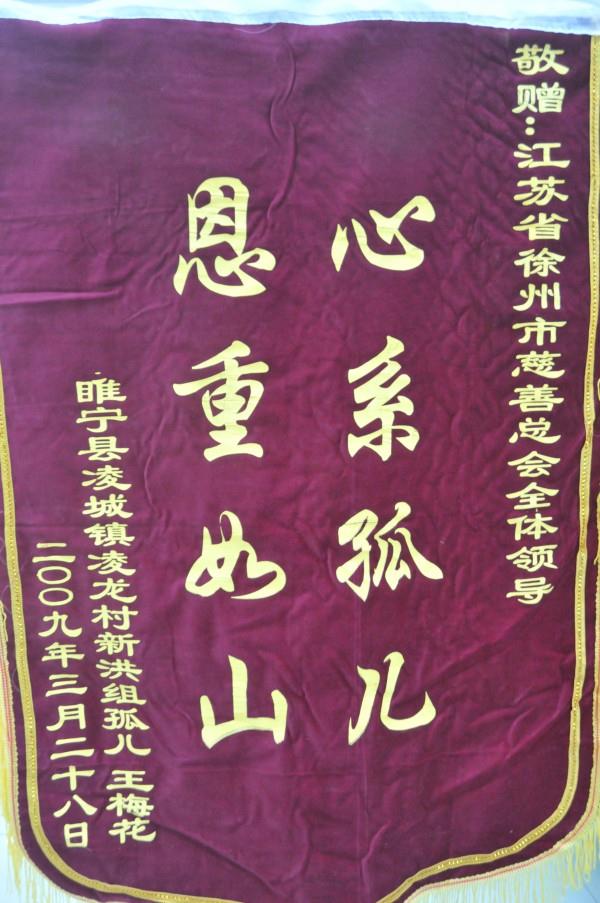 敬赠:江苏省徐州市慈善总会全体领导
心系孤儿
恩重如山
睢宁县凌城镇凌龙村新洪组孤儿 王梅花
二〇〇九年三月二十八日